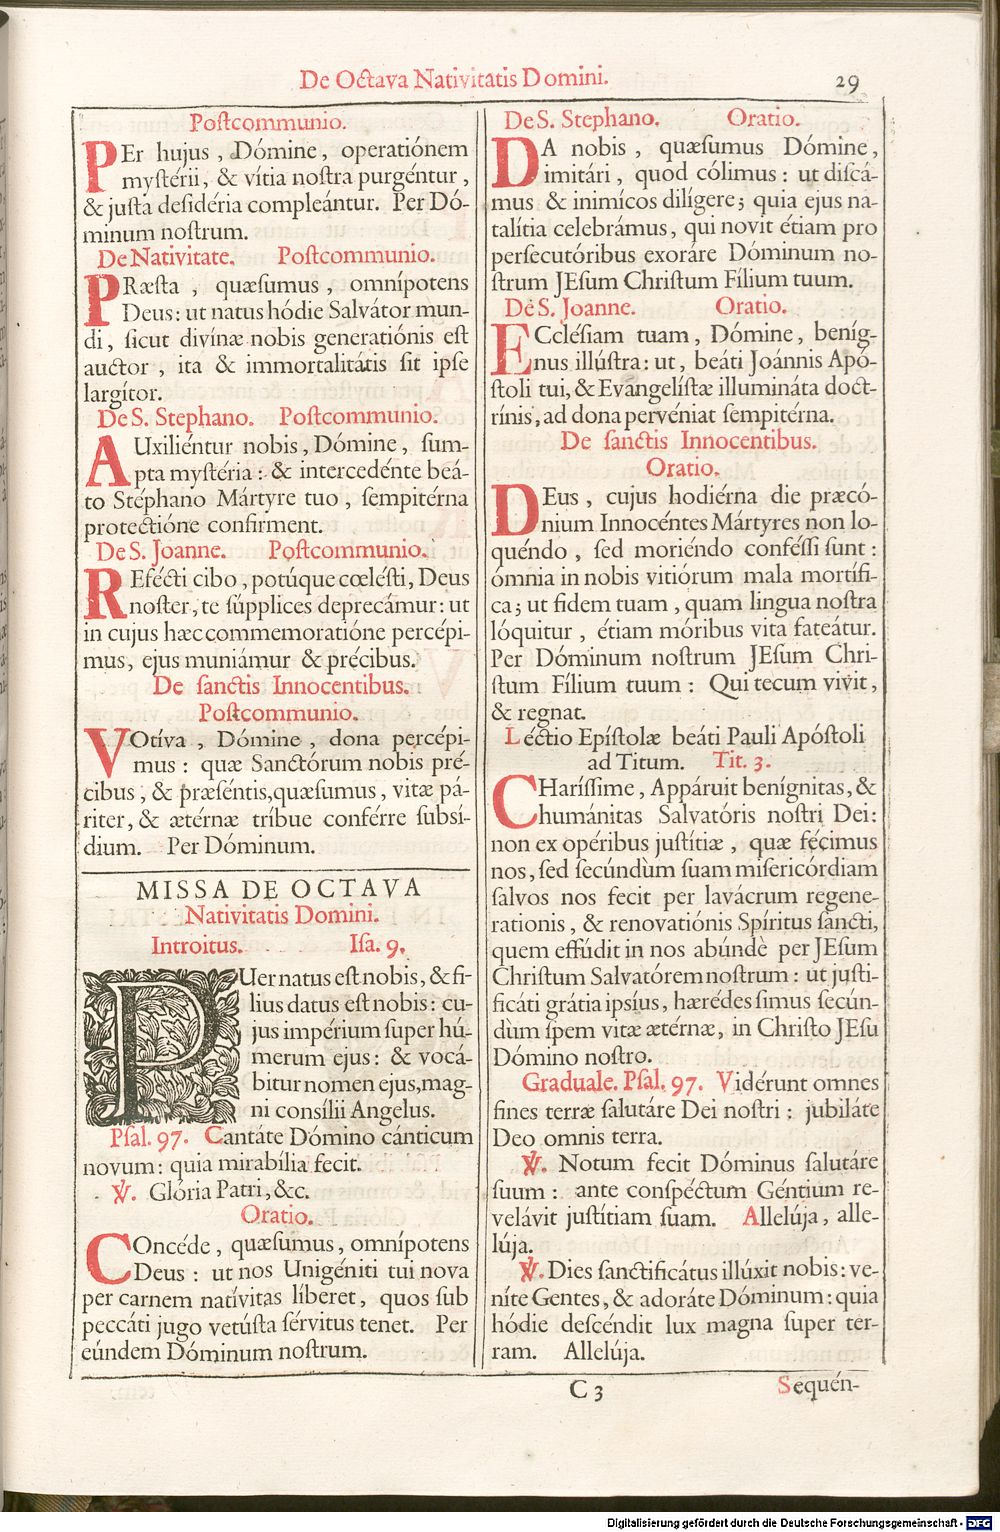 De Octava Nativitatis Domini.
29
Poſtcommunio.
PEr hujus, Dómine, operatiónem
myſtérii, & vítia noſtra purgéntur,
& juſta deſidéria compleántur. Per Dó-
minum noſtrum.
De Nativitate. Poſtcommunio.
PRæſta, quæſumus, omnípotens
Deus: ut natus hódie Salvátor mun-
di, ſicut divínæ nobis generatiónis eſt
auctor, ita & immortalitátis ſit ipſe
largítor.
De S. Stephano. Poſtcommunio.
AUxiliéntur nobis, Dómine, ſum-
pta myſtéria: & intercedénte beá-
to Stéphano Mártyre tuo, ſempitérna
protectióne confirment.
De S. Joanne. Poſtcommunio.
REfécti cibo, potúque cœléſti, Deus
noſter, te ſúpplices deprecámur: ut
in cujus hæc commemoratióne percépi-
mus, ejus muniámur & précibus.
De ſanctis Innocentibus.
Poſtcommunio.
VOtíva, Dómine, dona percépi-
mus: quæ Sanctórum nobis pré-
cibus, & præſéntis, quæſumus, vitæ pá-
riter, & ætérnæ tríbue conférre ſubsí-
dium. Per Dóminum.
MISSA DE OCTAVA
Nativitatis Domini.
Introitus. Iſa. 9.
PUer natus eſt nobis, & fí-
lius datus eſt nobis: cu-
jus impérium ſuper hú-
merum ejus: & vocá-
bitur nomen ejus, mag-
ni consílii Angelus.
Pſal. 97. Cantáte Dómino cánticum
novum: quia mirabília fecit.
℣. Glória Patri, &c.
Oratio.
COncéde, quæſumus, omnípotens
Deus: ut nos Unigéniti tui nova
per carnem natívitas líberet, quos ſub
peccáti jugo vetúſta ſérvitus tenet. Per
eúndem Dóminum noſtrum.
De S. Stephano. Oratio.
DA nobis, quæſumus Dómine,
imitári, quod cólimus: ut diſcá-
mus & inimícos dilígere; quia ejus na-
talítia celebrámus, qui novit étiam pro
perſecutóribus exoráre Dóminum no-
ſtrum JEſum Chriſtum Fílium tuum.
De S. Joanne. Oratio.
ECcléſiam tuam, Dómine, beníg-
nus illúſtra: ut, beáti Joánnis Apó-
ſtoli tui, & Evangelíſtæ illumináta doct-
rínis, ad dona pervéniat ſempitérna.
De ſanctis Innocentibus.
Oratio.
DEus, cujus hodiérna die præcó-
nium Innocéntes Mártyres non lo-
quéndo, ſed moriéndo conféſſi ſunt:
ómnia in nobis vitiórum mala mortífi-
ca; ut fidem tuam, quam lingua noſtra
lóquitur, étiam móribus vita fateátur.
Per Dóminum noſtrum JEſum Chri-
ſtum Fílium tuum: Qui tecum vivit,
& regnat.
Léctio Epíſtolæ beáti Pauli Apóſtoli
ad Titum. Tit. 3.
CHaríſſime, Appáruit benígnitas, &
humánitas Salvatóris noſtri Dei:
non ex opéribus juſtítiæ, quæ fécimus
nos, ſed ſecúndùm ſuam miſericórdiam
ſalvos nos fecit per lavácrum regene-
rationis, & renovatiónis Spíritus ſancti,
quem effúdit in nos abúndè per JEſum
Chriſtum Salvatórem noſtrum: ut juſti-
ficáti grátia ipsíus, hærédes ſimus ſecún-
dùm ſpem vitæ ætérnæ, in Chriſto JEſu
Dómino noſtro.
Graduale. Pſal. 97. Vidérunt omnes
fines terræ ſalutáre Dei noſtri: jubiláte
Deo omnis terra.
℣. Notum fecit Dóminus ſalutáre
ſuum: ante conſpéctum Géntium re-
velávit juſtítiam ſuam. Allelúja, alle-
lúja.
℣. Dies ſanctificátus illúxit nobis: ve-
níte Gentes, & adoráte Dóminum: quia
hódie deſcéndit lux magna ſuper ter-
ram. Allelúja.
C 3
Sequén-
Digitalisierung gefördert durch die Deutsche Forschungsgemeinschaft - DFG